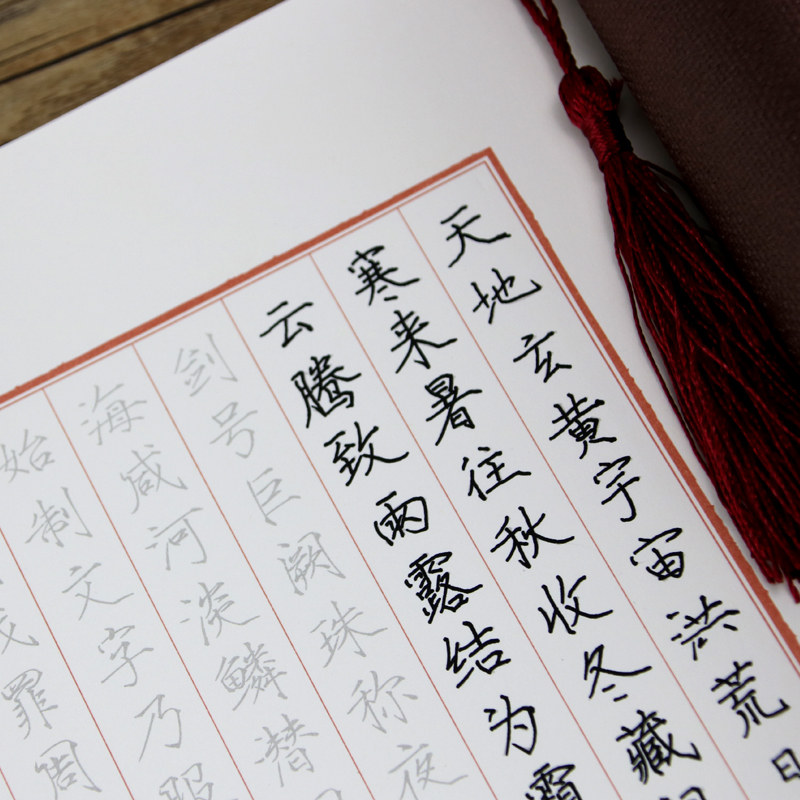 天地玄黄宇宙洪荒日
寒来暑往秋收冬藏
云腾致雨露结为霜
剑号巨阙珠称夜
海咸河淡鳞潜
始制文字乃服
罪周